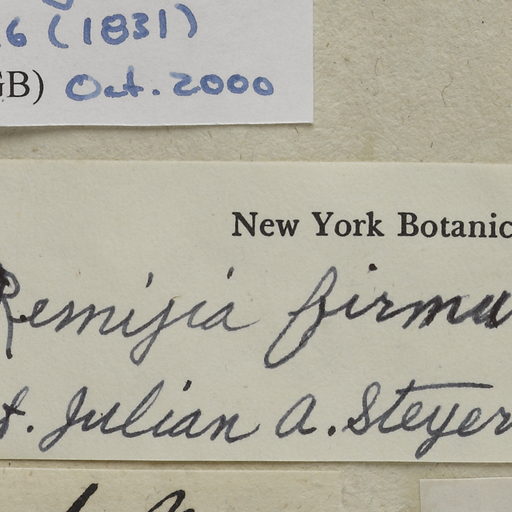 26 (1831)
GB) Oct. 2000
New York Botanic
Remijia firmu
t. Julian A. Steyer